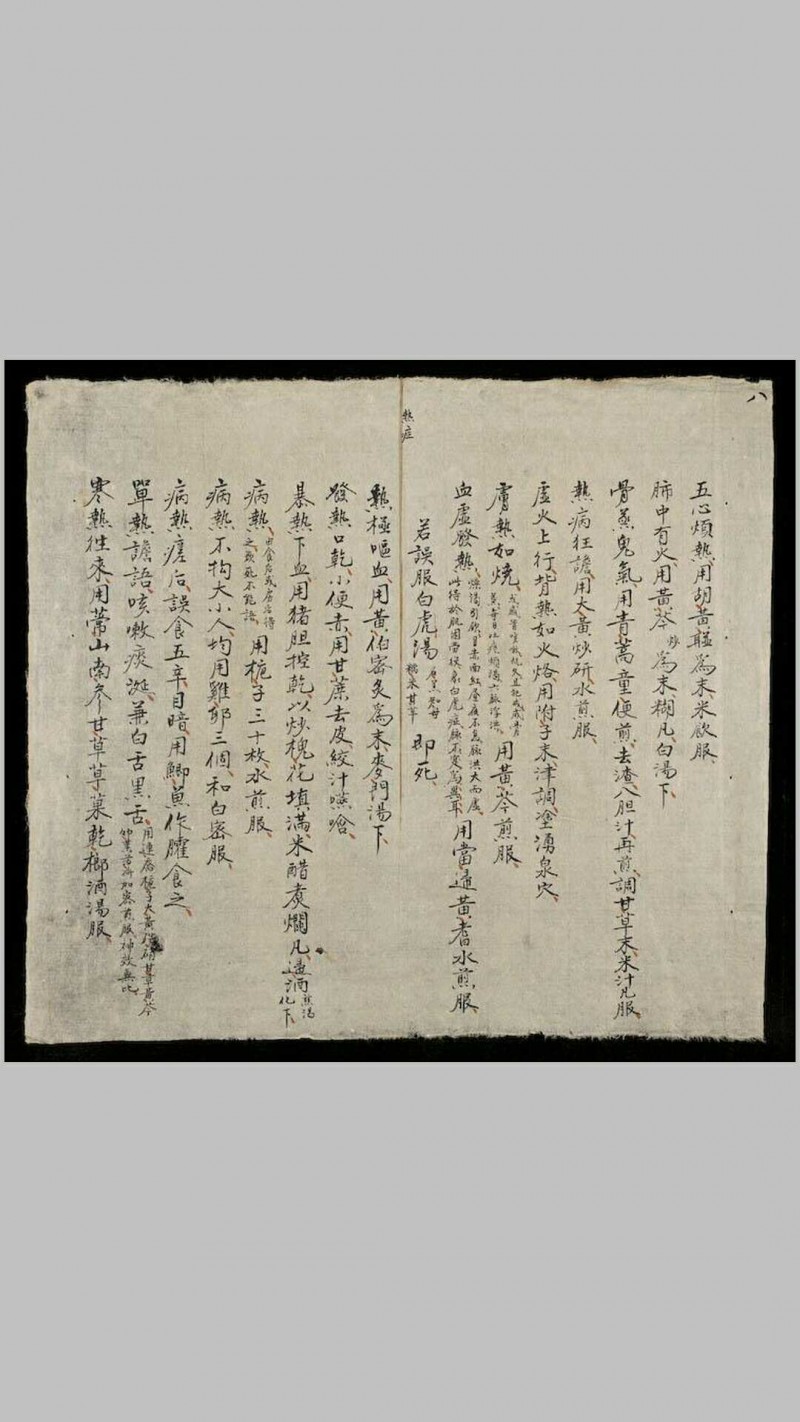 八
五心煩熱、用胡黃蓮為末、米飲服、
肺中有火、用黃芩炒為末、糊凡、白湯下、
骨蒸鬼氣、用青蒿童便煎、去渣、入胆汁、再煎、調甘草末、米汁凡服、
熱病狂譫、用大黃炒研水煎服、
虛火上行、背熱如火烙、用附子末、津調、塗湧泉穴、
膚熱如燒、用黃芩煎服、
血虛發熱、用當歸黃耆水煎服、
若誤服白虎湯、即死、
熱症
熱極嘔血、用黃伯密炙為末、麥門湯下、
發熱口乾、小便赤、用甘蔗去皮絞汁嚥
暴熱下血、用猪胆控乾、以炒槐花填滿、米醋煮爛凡、
病熱、用梔子三十枚、水煎服、
病熱不拘大小人、均用雞卵三個、和白密服、
病熱瘥后、誤食五辛目暗、用鯽魚作臛食之、
單熱譫語、咳嗽痰涎、兼白舌黑舌、
寒熱往來、用常山南參甘草草菓乾榔酒湯服、